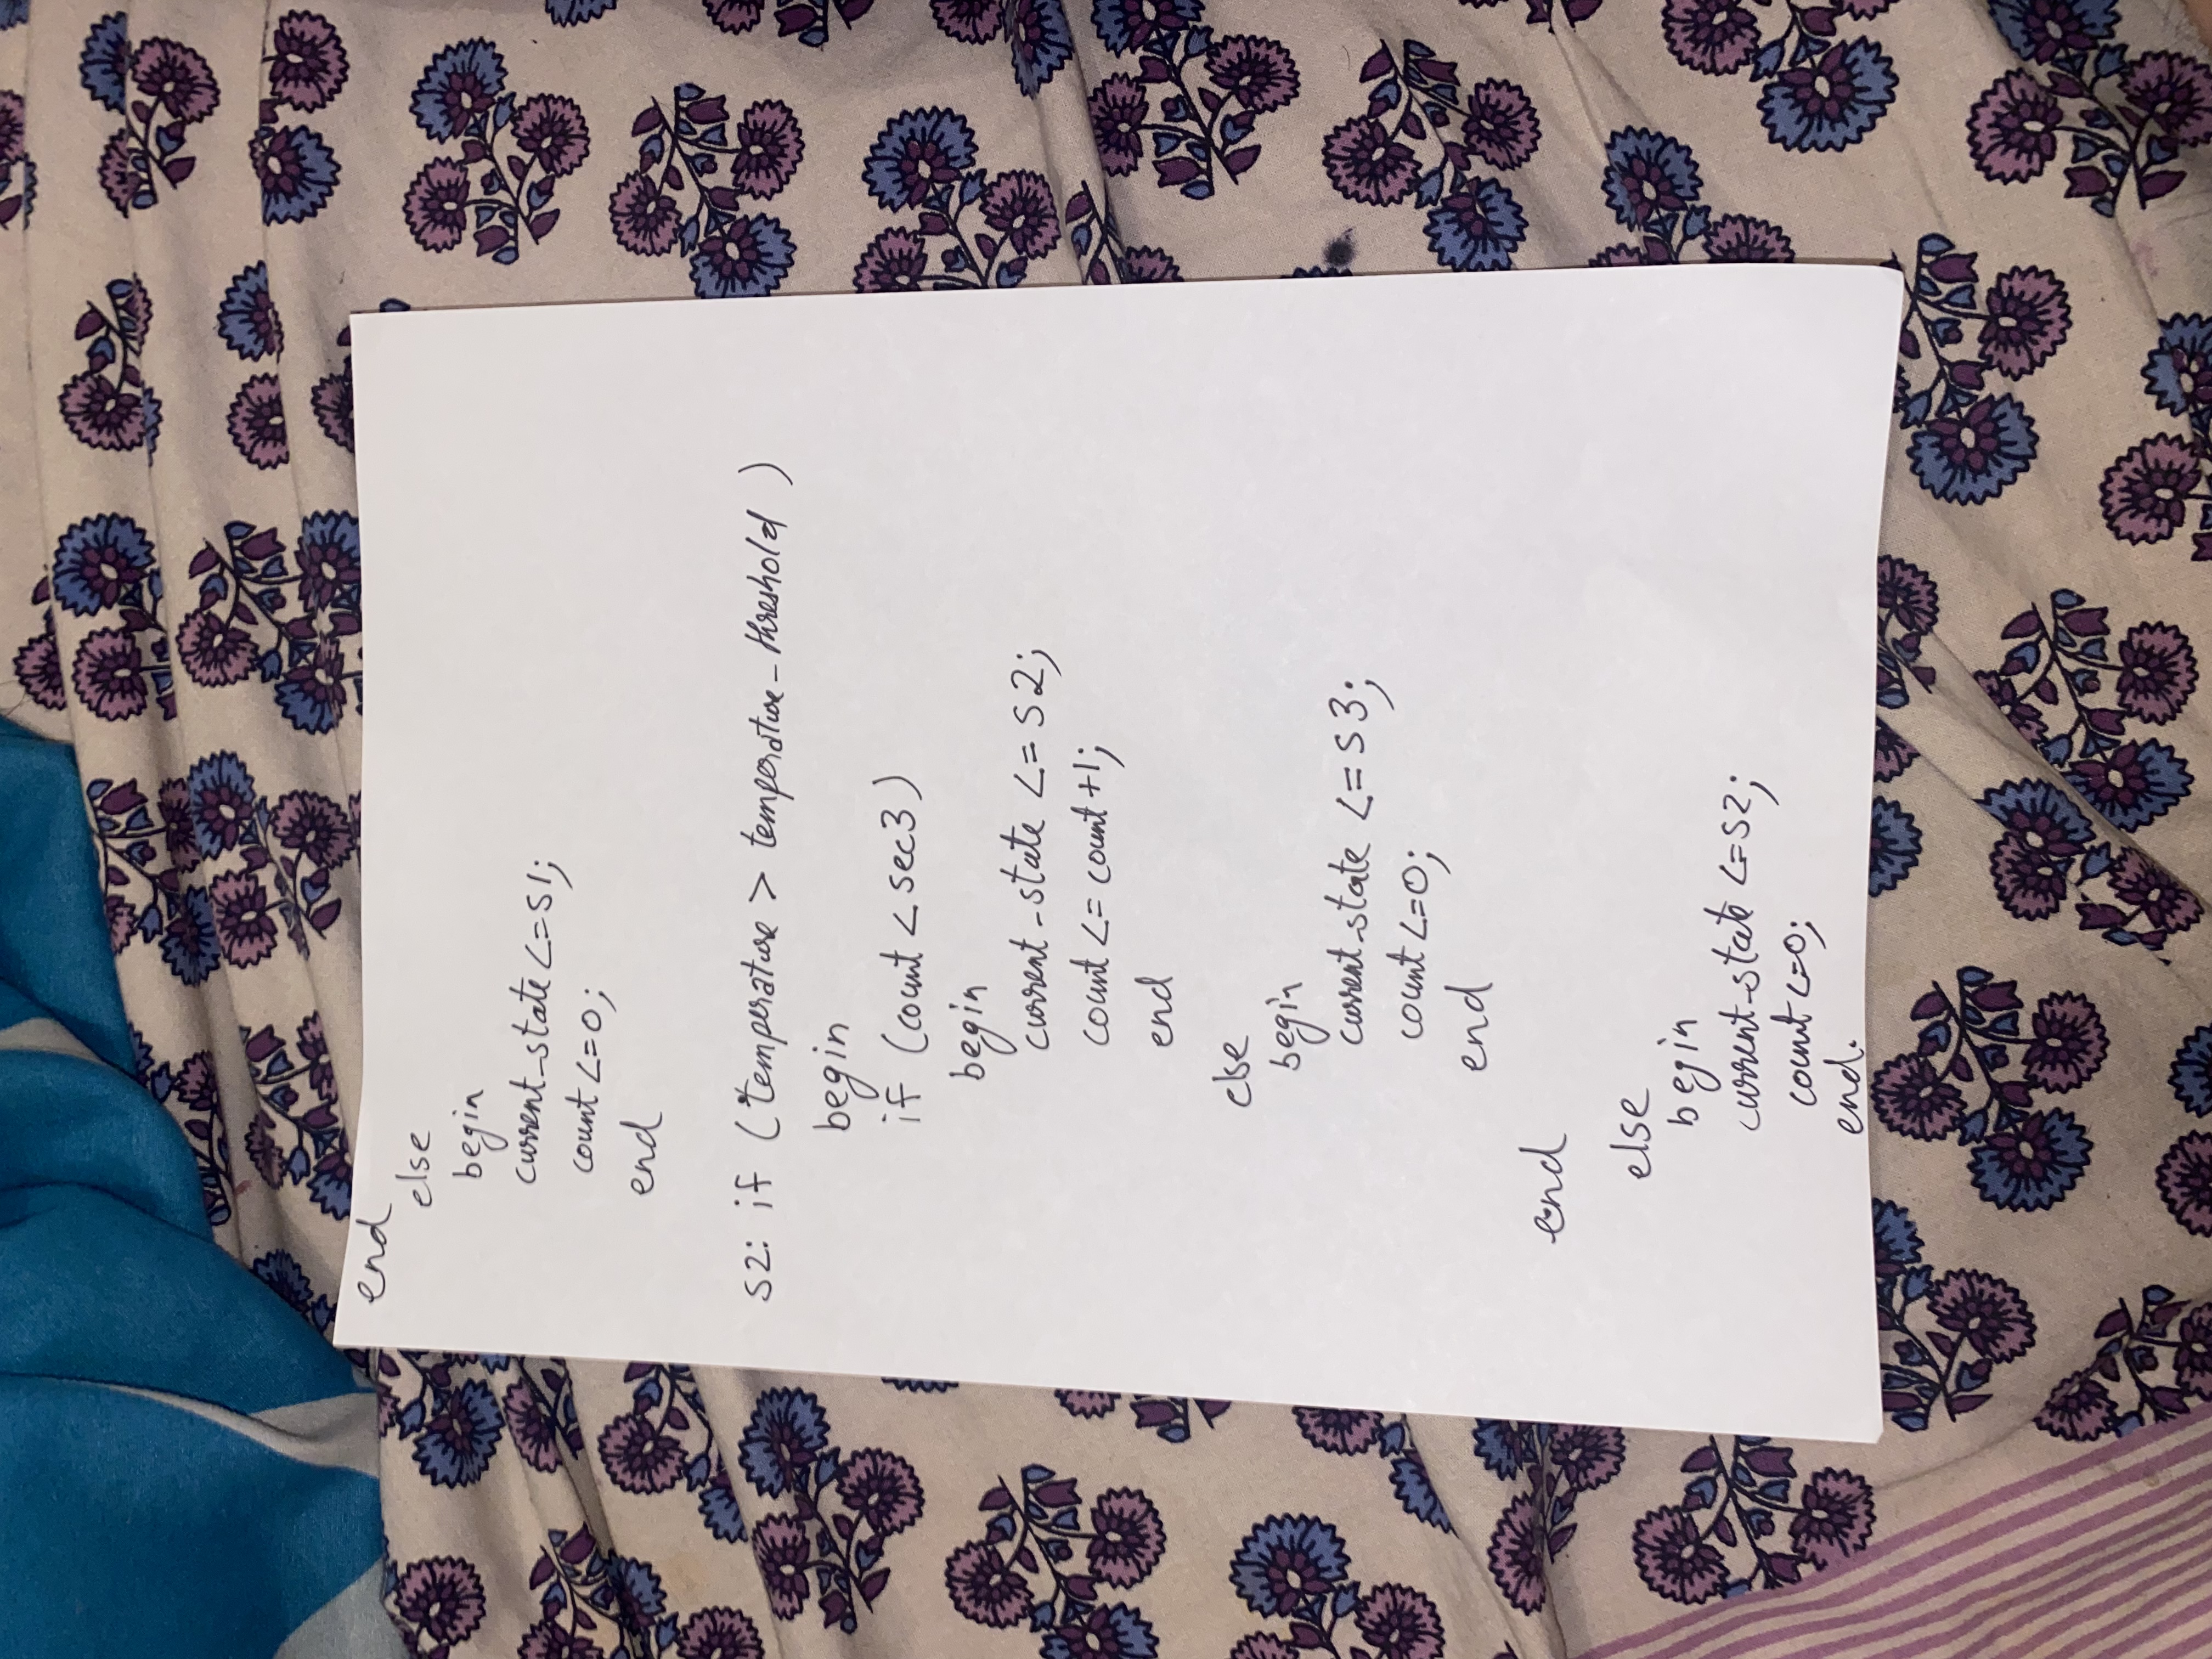 end
else
begin
current_state <= S1;
count <= 0;
end
S2: if (temperature > temperature_threshold)
begin
if (count < sec3)
begin
current_state <= S2;
count <= count+1;
end
else
begin
current_state <= S3;
count <= 0;
end
end
else
begin
current_state <= S2;
count <= 0;
end.